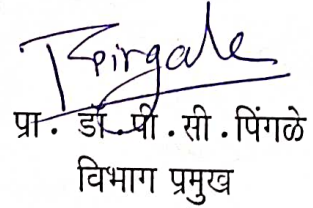 Tpirgale
प्रा. डॉ. पी. सी. पिंगळे
विभाग प्रमुख